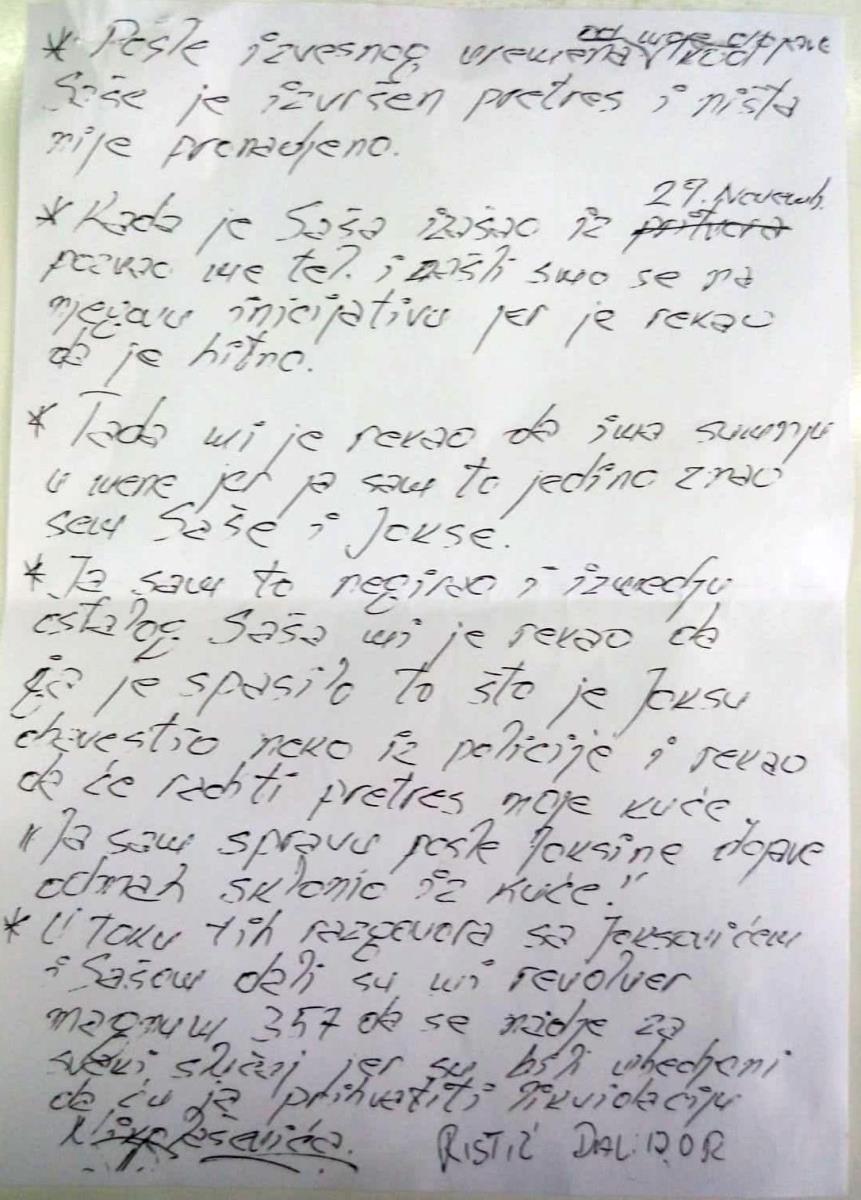 * Posle izvesnog vremena od moje dojave kod
Saše je izvršen pretres i ništa
nije pronadjeno.
29. Novemb.
* Kada je Saša izašao iz pritvora
pozvao me tel. i našli smo se na
njegovu inicijativu jer je rekao
da je hitno.
* Tada mi je rekao da ima sumnju
u mene jer ja sam to jedino znao
sem Saše i Jokse.
* Ja sam to negirao i izmedju
ostalog Saša mi je rekao da
ga je spasilo to što je Joksu
obavestio neko iz policije i rekao
da će raditi pretres moje kuće.
"Ja sam spravu posle Joksine dojave
odmah sklonio iz kuće."
* U toku tih razgovora sa Joksovićem
i Sašom dali su mi revolver
magnum 357 da se nadje za
svaki slučaj jer su bili ubedjeni
da ću ja prihvatiti likvidaciju
RISTIĆ DALIBOR